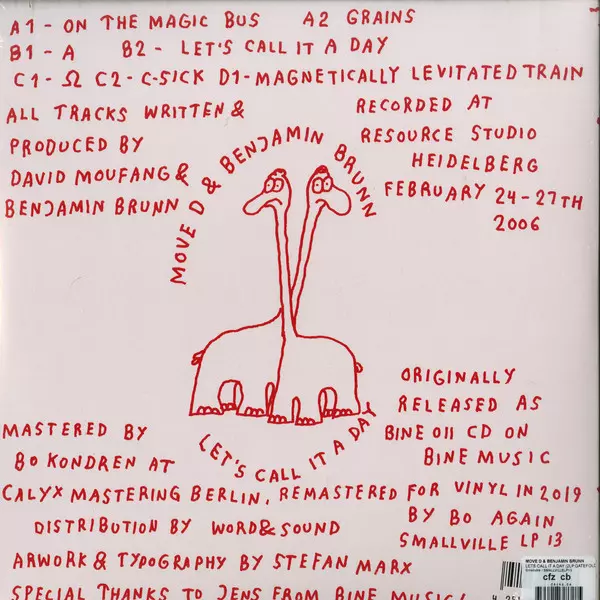 A1 - ON THE MAGIC BUS A2 GRAINS
B1 - A B2 - LET'S CALL IT A DAY
C1 - Ω C2 - C-SICK D1 - MAGNETICALLY LEVITATED TRAIN
ALL TRACKS WRITTEN &
PRODUCED BY
DAVID MOUFANG &
BENJAMIN BRUNN
RECORDED AT
RESOURCE STUDIO
HEIDELBERG
FEBRUARY 24-27TH
2006
MOVE D & BENJAMIN BRUNN
LET'S CALL IT A DAY
ORIGINALLY
RELEASED AS
BINE 011 CD ON
BINE MUSIC
MASTERED BY
BO KONDREN AT
CALYX MASTERING BERLIN, REMASTERED FOR VINYL IN 2019
BY BO AGAIN
DISTRIBUTION BY WORD & SOUND
SMALLVILLE LP 13
ARWORK & TYPOGRAPHY BY STEFAN MARX
SPECIAL THANKS TO JENS FROM BINE MUSIC!
MOVE D & BENJAMIN BRUNN
LETS CALL IT A DAY (2LP GATEFOLD
cfz cb
4 251